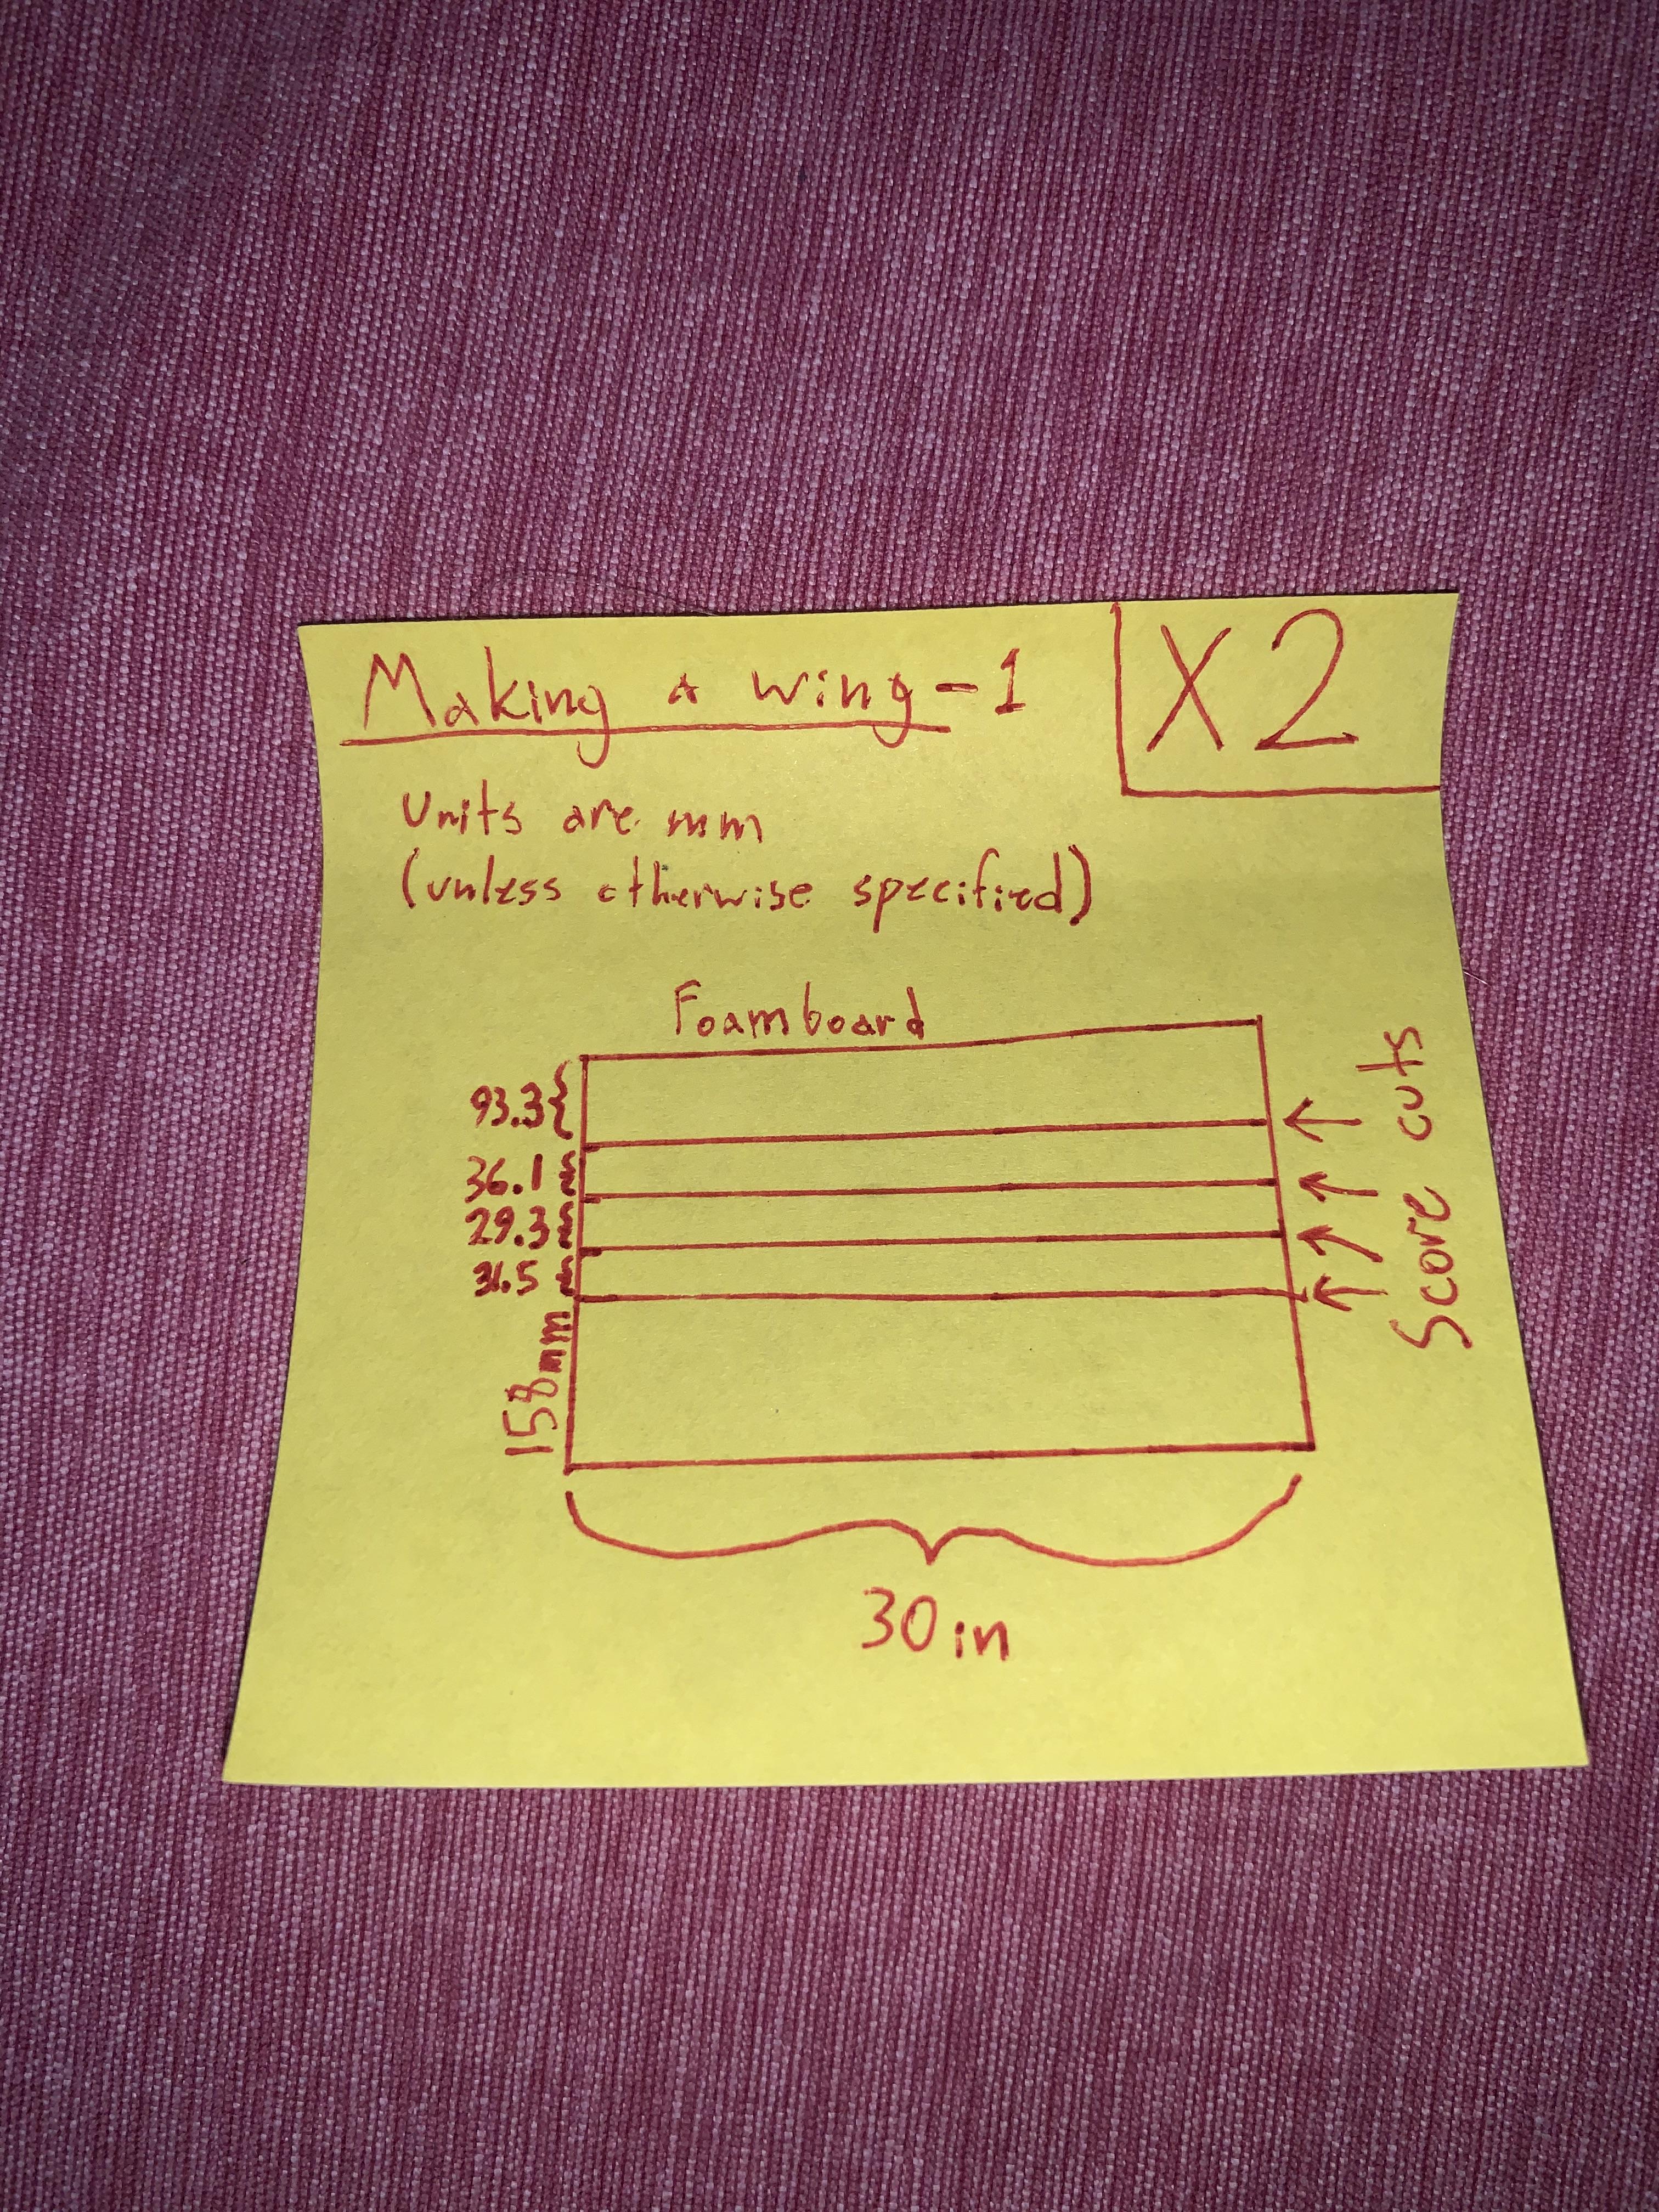 Making a wing-1
X2
Units are mm
(unless otherwise specified)
Foamboard
93.3
36.1
29.3
158mm
Score cuts
30in